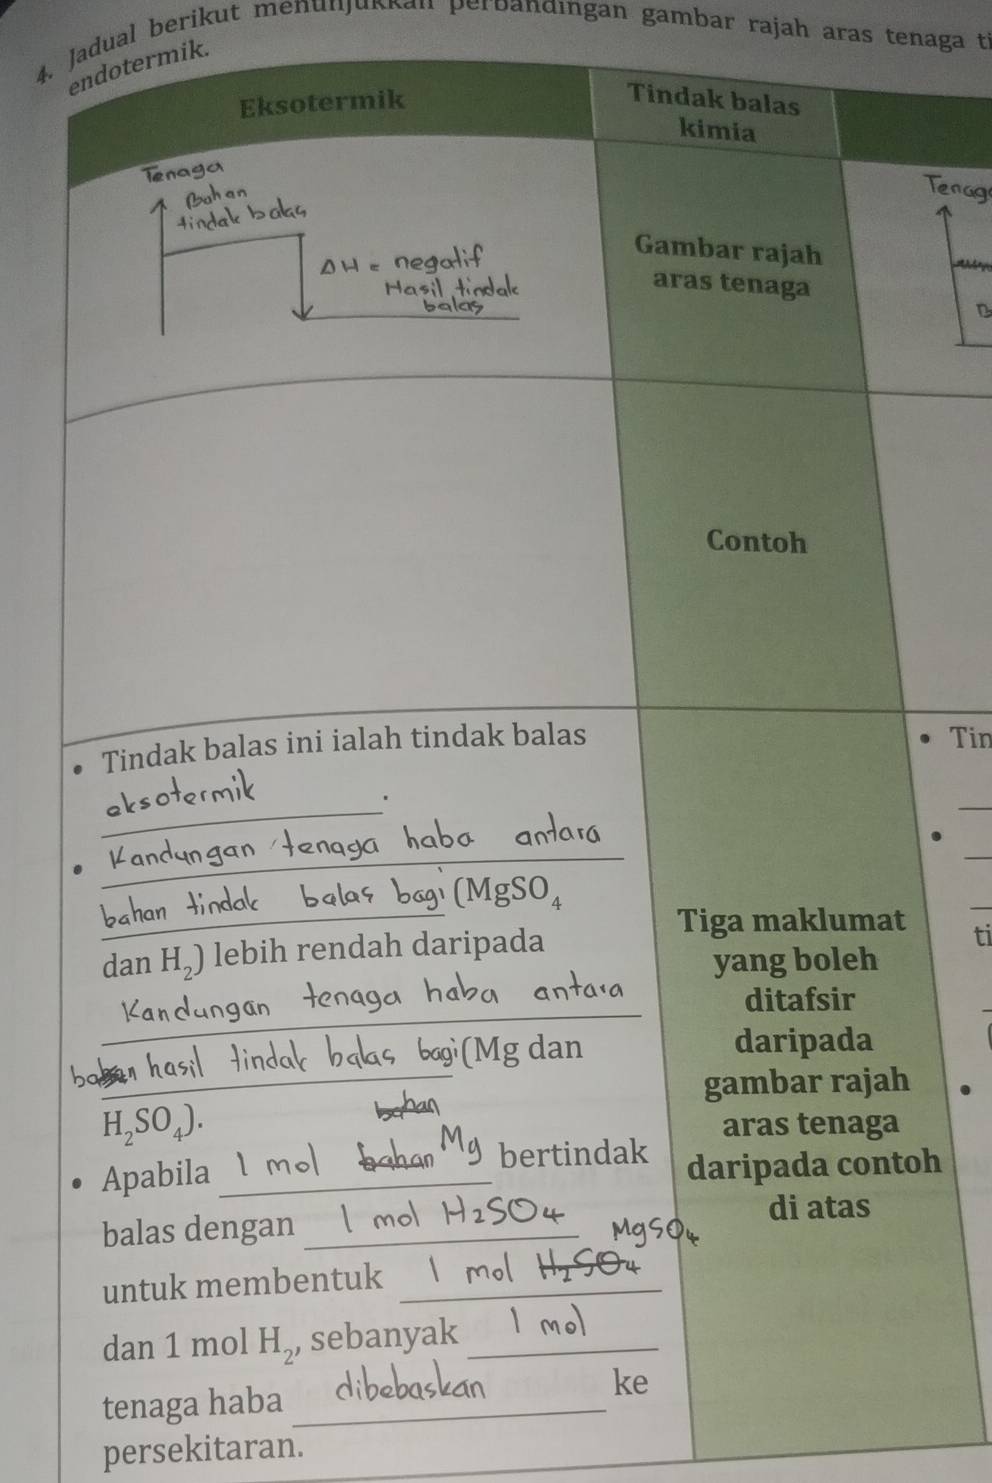 4. Jadual berikut menunjukkan perbandingan gambar rajah aras tenaga ti
endotermik.
Eksotermik
Tindak balas
kimia
Tenaga
Bahan
tindak balas
ΔH = negatif
Hasil tindak
balas
Gambar rajah
aras tenaga
Tenaga
Contoh
• Tindak balas ini ialah tindak balas
eksotermik.
• Kandungan tenaga haba antara
bahan tindak balas bagi (MgSO₄
dan H₂) lebih rendah daripada
Kandungan tenaga haba antara
hasil tindak balas bagi (Mg dan
H₂SO₄).
bahan
• Apabila 1 mol bahan Mg bertindak
balas dengan 1 mol H₂SO₄
MgSO₄
untuk membentuk 1 mol H₂SO₄
dan 1 mol H₂, sebanyak 1 mol
tenaga haba dibebaskan ke
persekitaran.
Tiga maklumat
yang boleh
ditafsir
daripada
gambar rajah
aras tenaga
daripada contoh
di atas
• Tin
ti